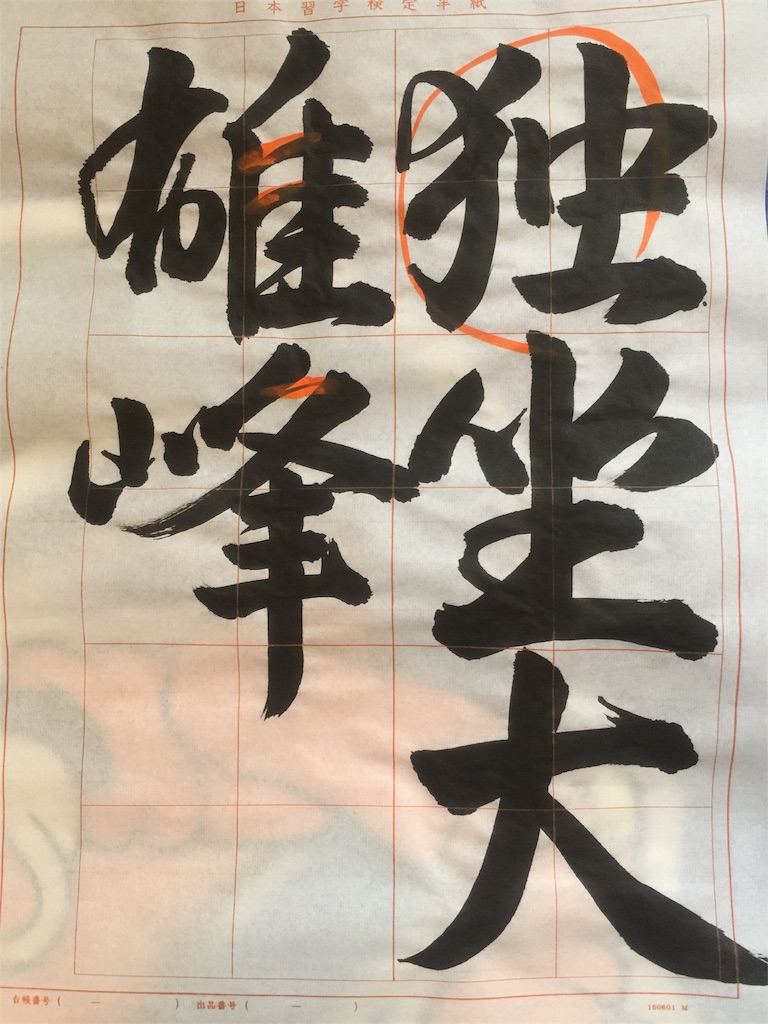 日本習字検定半紙
独坐大
雄峰
台帳番号( ー ) 出品番号( ー )